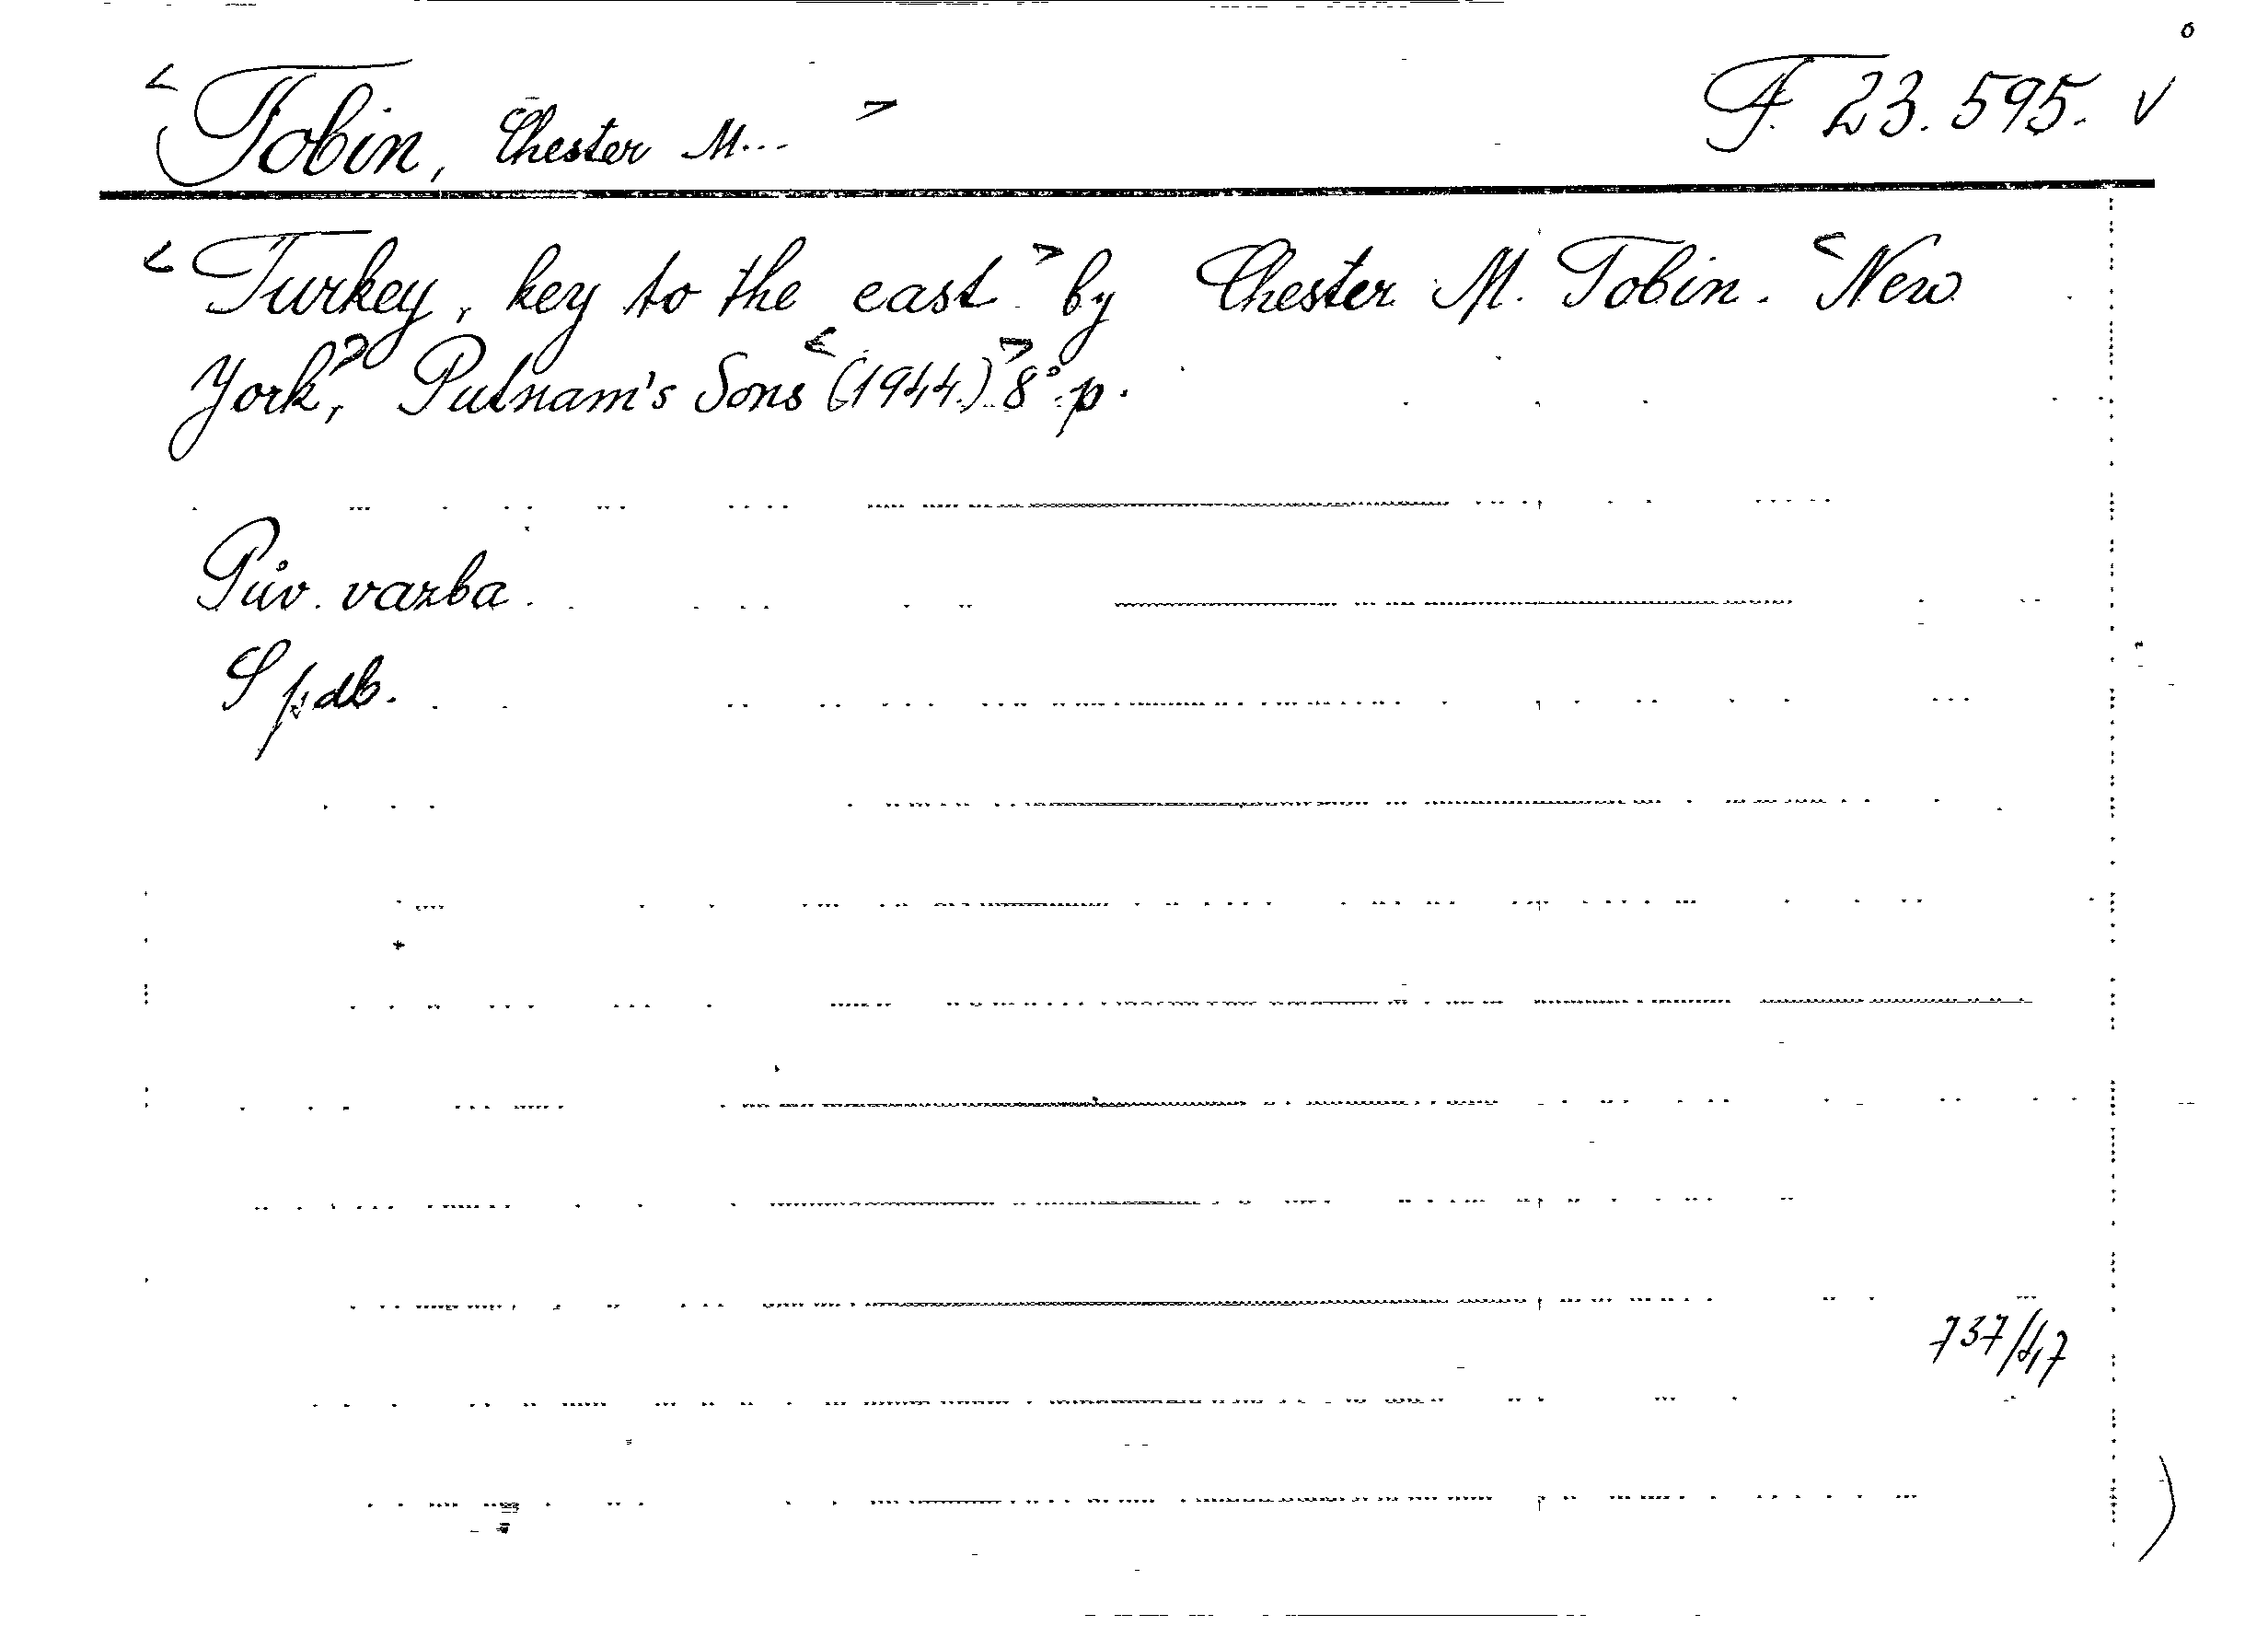 <Tobin, Chester M...> F 23.595. v
<Turkey, key to the east> by Chester M. Tobin. <New
York,> Putnam's Sons <(1944.)> 8° p.
Pův. vazba.
S pdb.
737/47